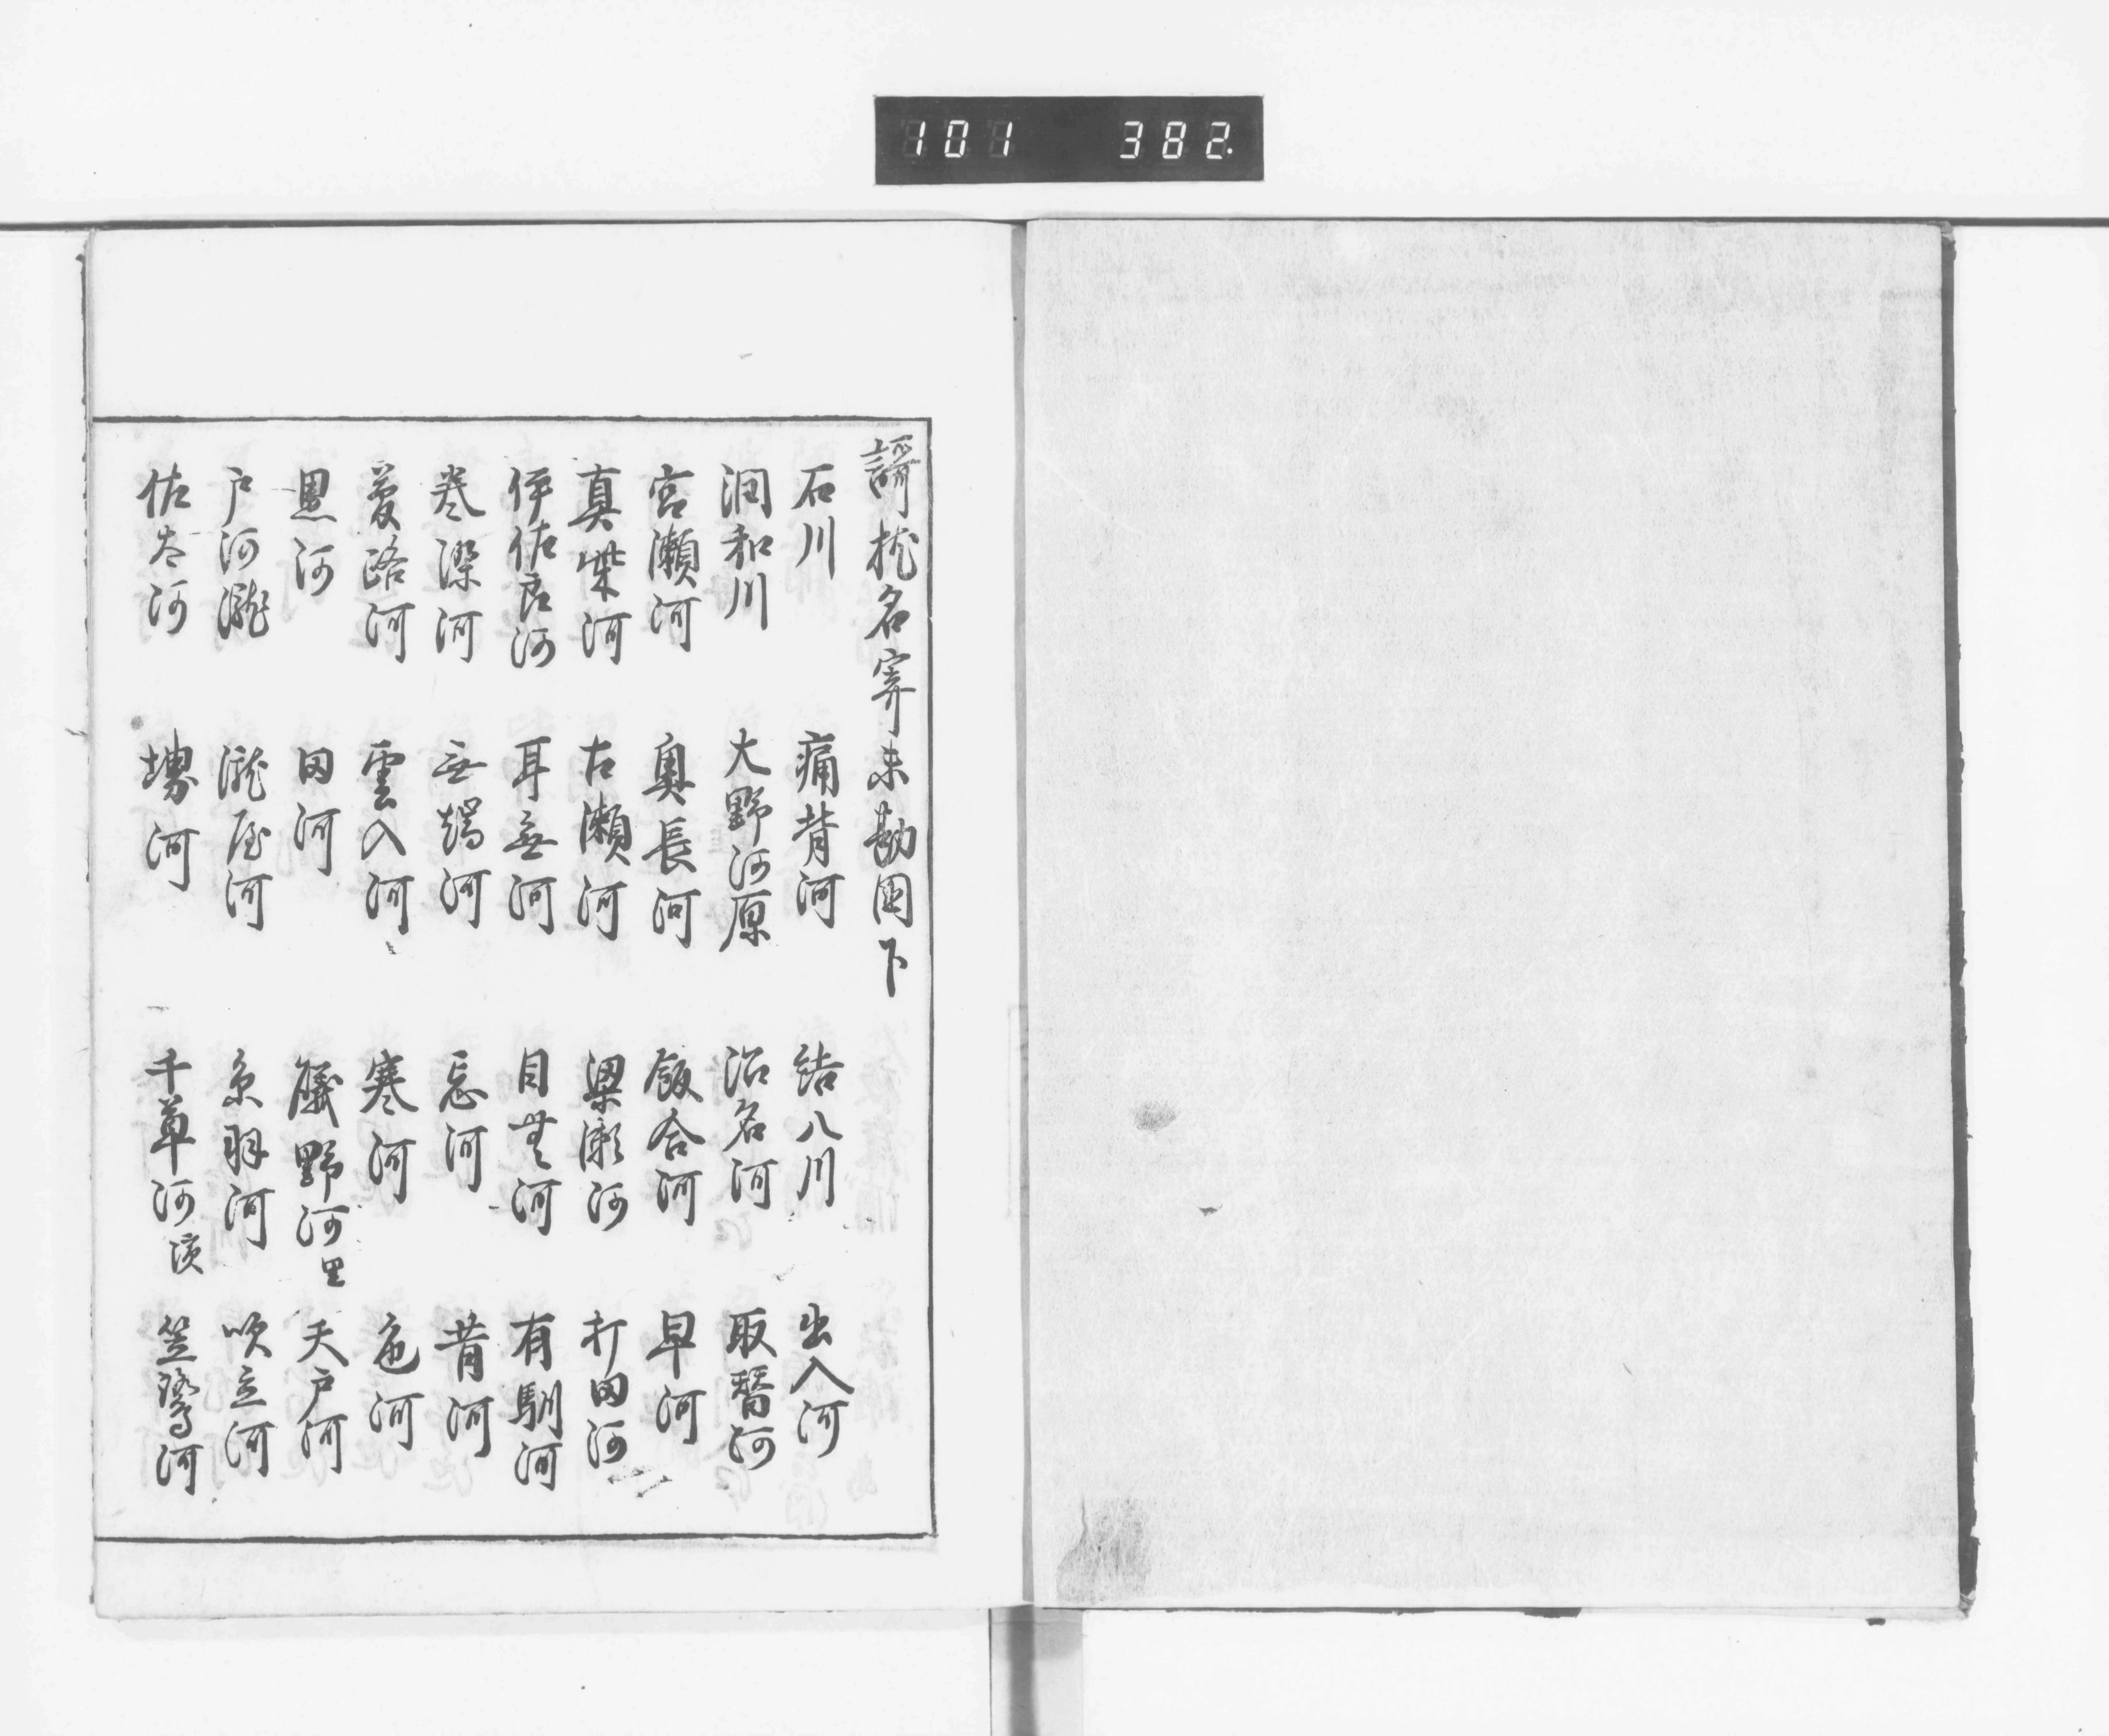 101 382
謌枕名寄未勘国下
石川 痛背河 結八川 出入河
潤和川 大野河原 沼名河 取替河
宮瀬河 奥長河 飯合河 早河
真柴河 古瀬河 梁瀬河 打田河
伊佐良河 耳無河 目無河 有馴河
巻染河 無河 忘河 昔河
河 雲入河 寒河 色河
黒河 田河 磯野河里 天戸河
戸河瀧 瀧屋河 糸羽河 吹立河
佐太河 堺河 千草河濱 笠鷺河